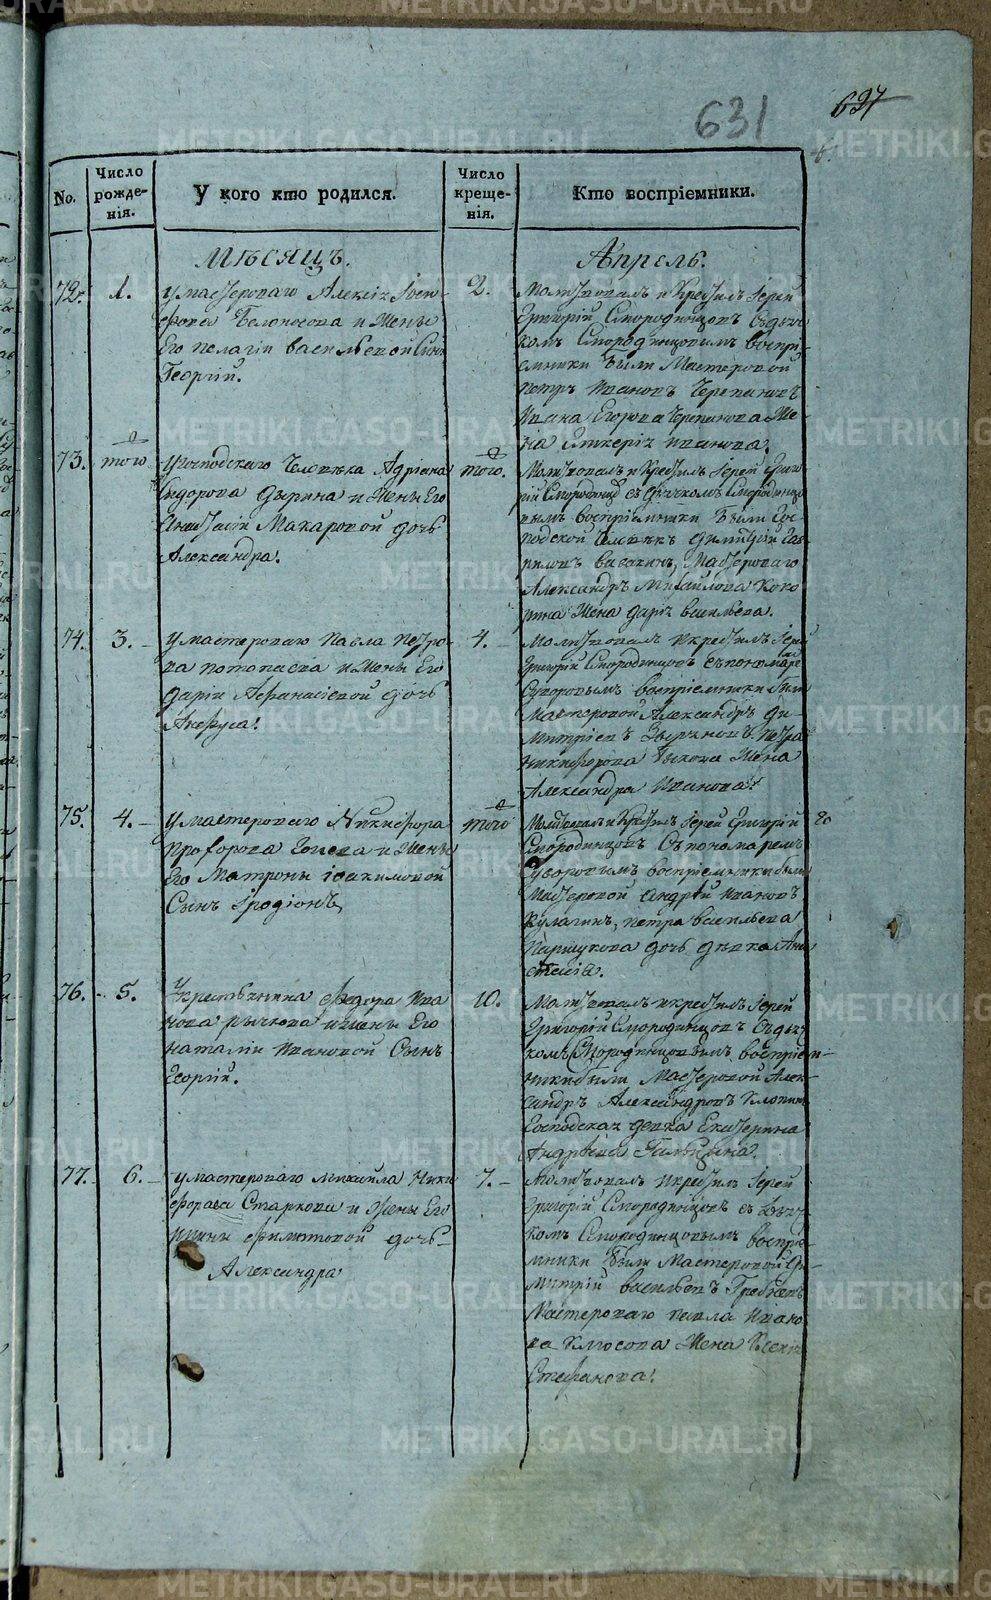 631
627
No.
Число рожде-
нія.
У кого кто родился.
Число креще-
нія.
Кто воспріемники.
Мѣсяцъ.
Апрель.
72.
1.
У мастероваго Алексія
Белоносова и Жены
Его Пелагіи Васильевой Сынъ
Георгій.
2.
Молитвовалъ и Крестилъ Іерей
Григорій Смородинцовъ Съ дьяч-
комъ Смородинцовымъ воспри-
емники были Мастеровой
Петръ Ивановъ Черепановъ
Ивана Егорова Черепанова Же-
на Иванова.
73.
того
У господскаго Человѣка Адріана
Сидорова Дырина и Жены Его
Анастасіи Макаровой дочь
Александра.
того.
Молитвовалъ и Крестилъ Іерей Григо-
рій Смородинцовъ съ дьячкомъ Смородинцо-
вымъ воспріемники были Гос-
подской Человѣкъ Димитрій Гав-
риловъ Мастероваго
Александръ Михайлова Коко-
рина Жена Дарія Васильева.
74.
3.
У мастероваго Павла Петро-
ва Потопаева и Жены Его
Даріи Афанасіевой дочь
Анфуса.
4.
Молитвовалъ и крестилъ Іерей
Григорій Смородинцовъ съ пономаремъ
Суворовымъ воспріемники были
Мастеровой Александръ Ди-
митріевъ Зыряновъ Петра
Никифорова Быкова Жена
Александра Иванова.
75.
4.
У мастероваго Никифора
Прохорова и Жены
Его Матроны Іоакимовой
Сынъ Іродіонъ,
того
Молитвовалъ и Крестилъ Іерей Григорій
Смородинцовъ Съ пономаремъ
Суворовымъ воспріемники были
Мастеровой Андрей Ивановъ
Кулагинъ, Петра Васильева
Паршукова дочь дѣвка Ана-
стасія.
76.
5.
У крестьянина Федора Ива
нова Рычкова и жены Его
Наталіи Ивановой Сынъ
Георгій.
10.
Молитвовалъ и крестилъ Іерей
Григорій Смородинцовъ Съ дьяч-
комъ Смородинцовымъ воспріем-
ники были Мастеровой Алек-
сандръ Александровъ
Господская девка Екатерина
Андрѣева
77.
6.
У мастероваго Михаила Ники
форова Старкова и Жены Его
Ирины Филиповой дочь
Александра
7.
Молитвовалъ и крестилъ Іерей
Григорій Смородинцовъ съ дьяч-
комъ Смородинцовымъ воспріе-
мники были Мастеровой Ди-
митрій Васильевъ
Мастероваго Павла Ивано-
ва Клюсова Жена Ксенія
Стефанова.
METRIKI.GASO-URAL.RU